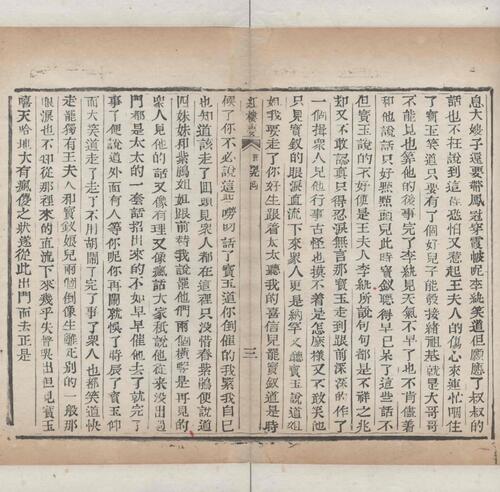 息大嫂子還要帶鳳冠穿霞帔呢李紈笑道但願應了叔叔的
話也不枉說到這裡恐怕又惹起王夫人的傷心來連忙咽住
了寶玉笑道只要有了個好兒子能彀接緒祖基就是大哥哥
不能見也算他的後事完了李紈見天氣不早了也不肯儘着
和他說話只好點點頭兒此時寶釵聽得早已呆了這些話不
但寶玉說的不好便是王夫人李紈所說句句都是不祥之兆
却又不敢認真只得忍淚無言那寶玉走到跟前深深的作了
一個揖衆人見他行事古怪也摸不着是怎麼樣又不敢笑他
只見寶釵的眼淚直流下來衆人更是納罕又聽寶玉說道姐
姐我要走了你好生跟着太太聽我的喜信兒罷寶釵道是時
紅樓夢
三
候了你不必說這些嘮叨話了寶玉道你倒催的我緊我自己
也知道該走了回頭見衆人都在這裡只没惜春紫鵑便說道
四妹妹和紫鵑姐姐跟前替我說罷他們兩個橫豎是再見的
衆人見他的話又像有理又像瘋話大家秖說他從來没出過
門都是太太的一套話招出來的不如早早催他去了就完了
事了便說道外面有人等你呢你再鬧就悞了時辰了寶玉仰
面大笑道走了走了不用胡鬧了完了事了衆人也都笑道快
走罷獨有王夫人和寶釵娘兒兩個倒像生離死别的一般那
眼淚也不知從那裡來的直流下來幾乎失聲哭出但見寶玉
嘻天哈地大有瘋傻之狀遂從此出門而去正是